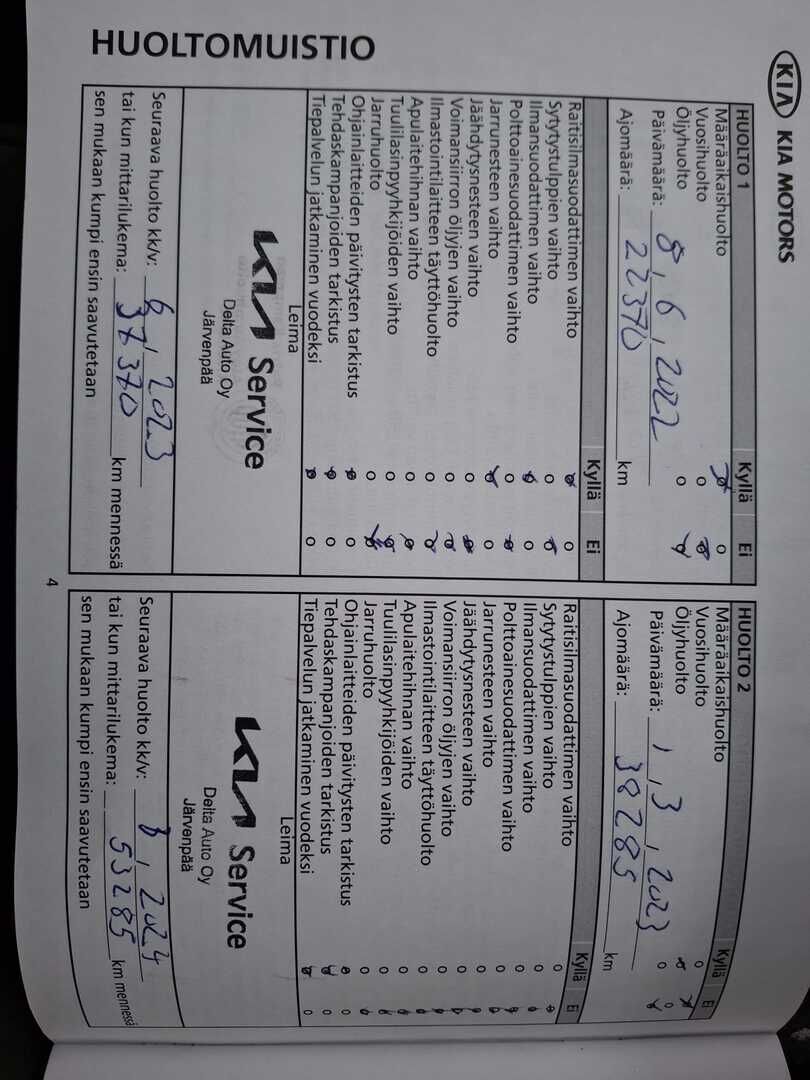 KIA KIA MOTORS
HUOLTOMUISTIO
HUOLTO 1 Kyllä Ei
Määräaikaishuolto
Vuosihuolto
Öljyhuolto
Päivämäärä: 8, 6, 2022
Ajomäärä: 22370 km
Kyllä Ei
Raitisilmasuodattimen vaihto
Sytytystulppien vaihto
Ilmansuodattimen vaihto
Polttoainesuodattimen vaihto
Jarrunesteen vaihto
Jäähdytysnesteen vaihto
Voimansiirron öljyjen vaihto
Ilmastointilaitteen täyttöhuolto
Apulaitehihnan vaihto
Tuulilasinpyyhkijöiden vaihto
Jarruhuolto
Ohjainlaitteiden päivitysten tarkistus
Tehdaskampanjoiden tarkistus
Tiepalvelun jatkaminen vuodeksi
Leima
KIA Service
Delta Auto Oy
Järvenpää
Seuraava huolto kk/v: 6, 2023
tai kun mittarilukema: 37370 km mennessä
sen mukaan kumpi ensin saavutetaan
HUOLTO 2 Kyllä Ei
Määräaikaishuolto
Vuosihuolto
Öljyhuolto
Päivämäärä: 1, 3, 2023
Ajomäärä: 38285 km
Kyllä Ei
Raitisilmasuodattimen vaihto
Sytytystulppien vaihto
Ilmansuodattimen vaihto
Polttoainesuodattimen vaihto
Jarrunesteen vaihto
Jäähdytysnesteen vaihto
Voimansiirron öljyjen vaihto
Ilmastointilaitteen täyttöhuolto
Apulaitehihnan vaihto
Tuulilasinpyyhkijöiden vaihto
Jarruhuolto
Ohjainlaitteiden päivitysten tarkistus
Tehdaskampanjoiden tarkistus
Tiepalvelun jatkaminen vuodeksi
Leima
KIA Service
Delta Auto Oy
Järvenpää
Seuraava huolto kk/v: 3, 2024
tai kun mittarilukema: 53285 km mennessä
sen mukaan kumpi ensin saavutetaan
4